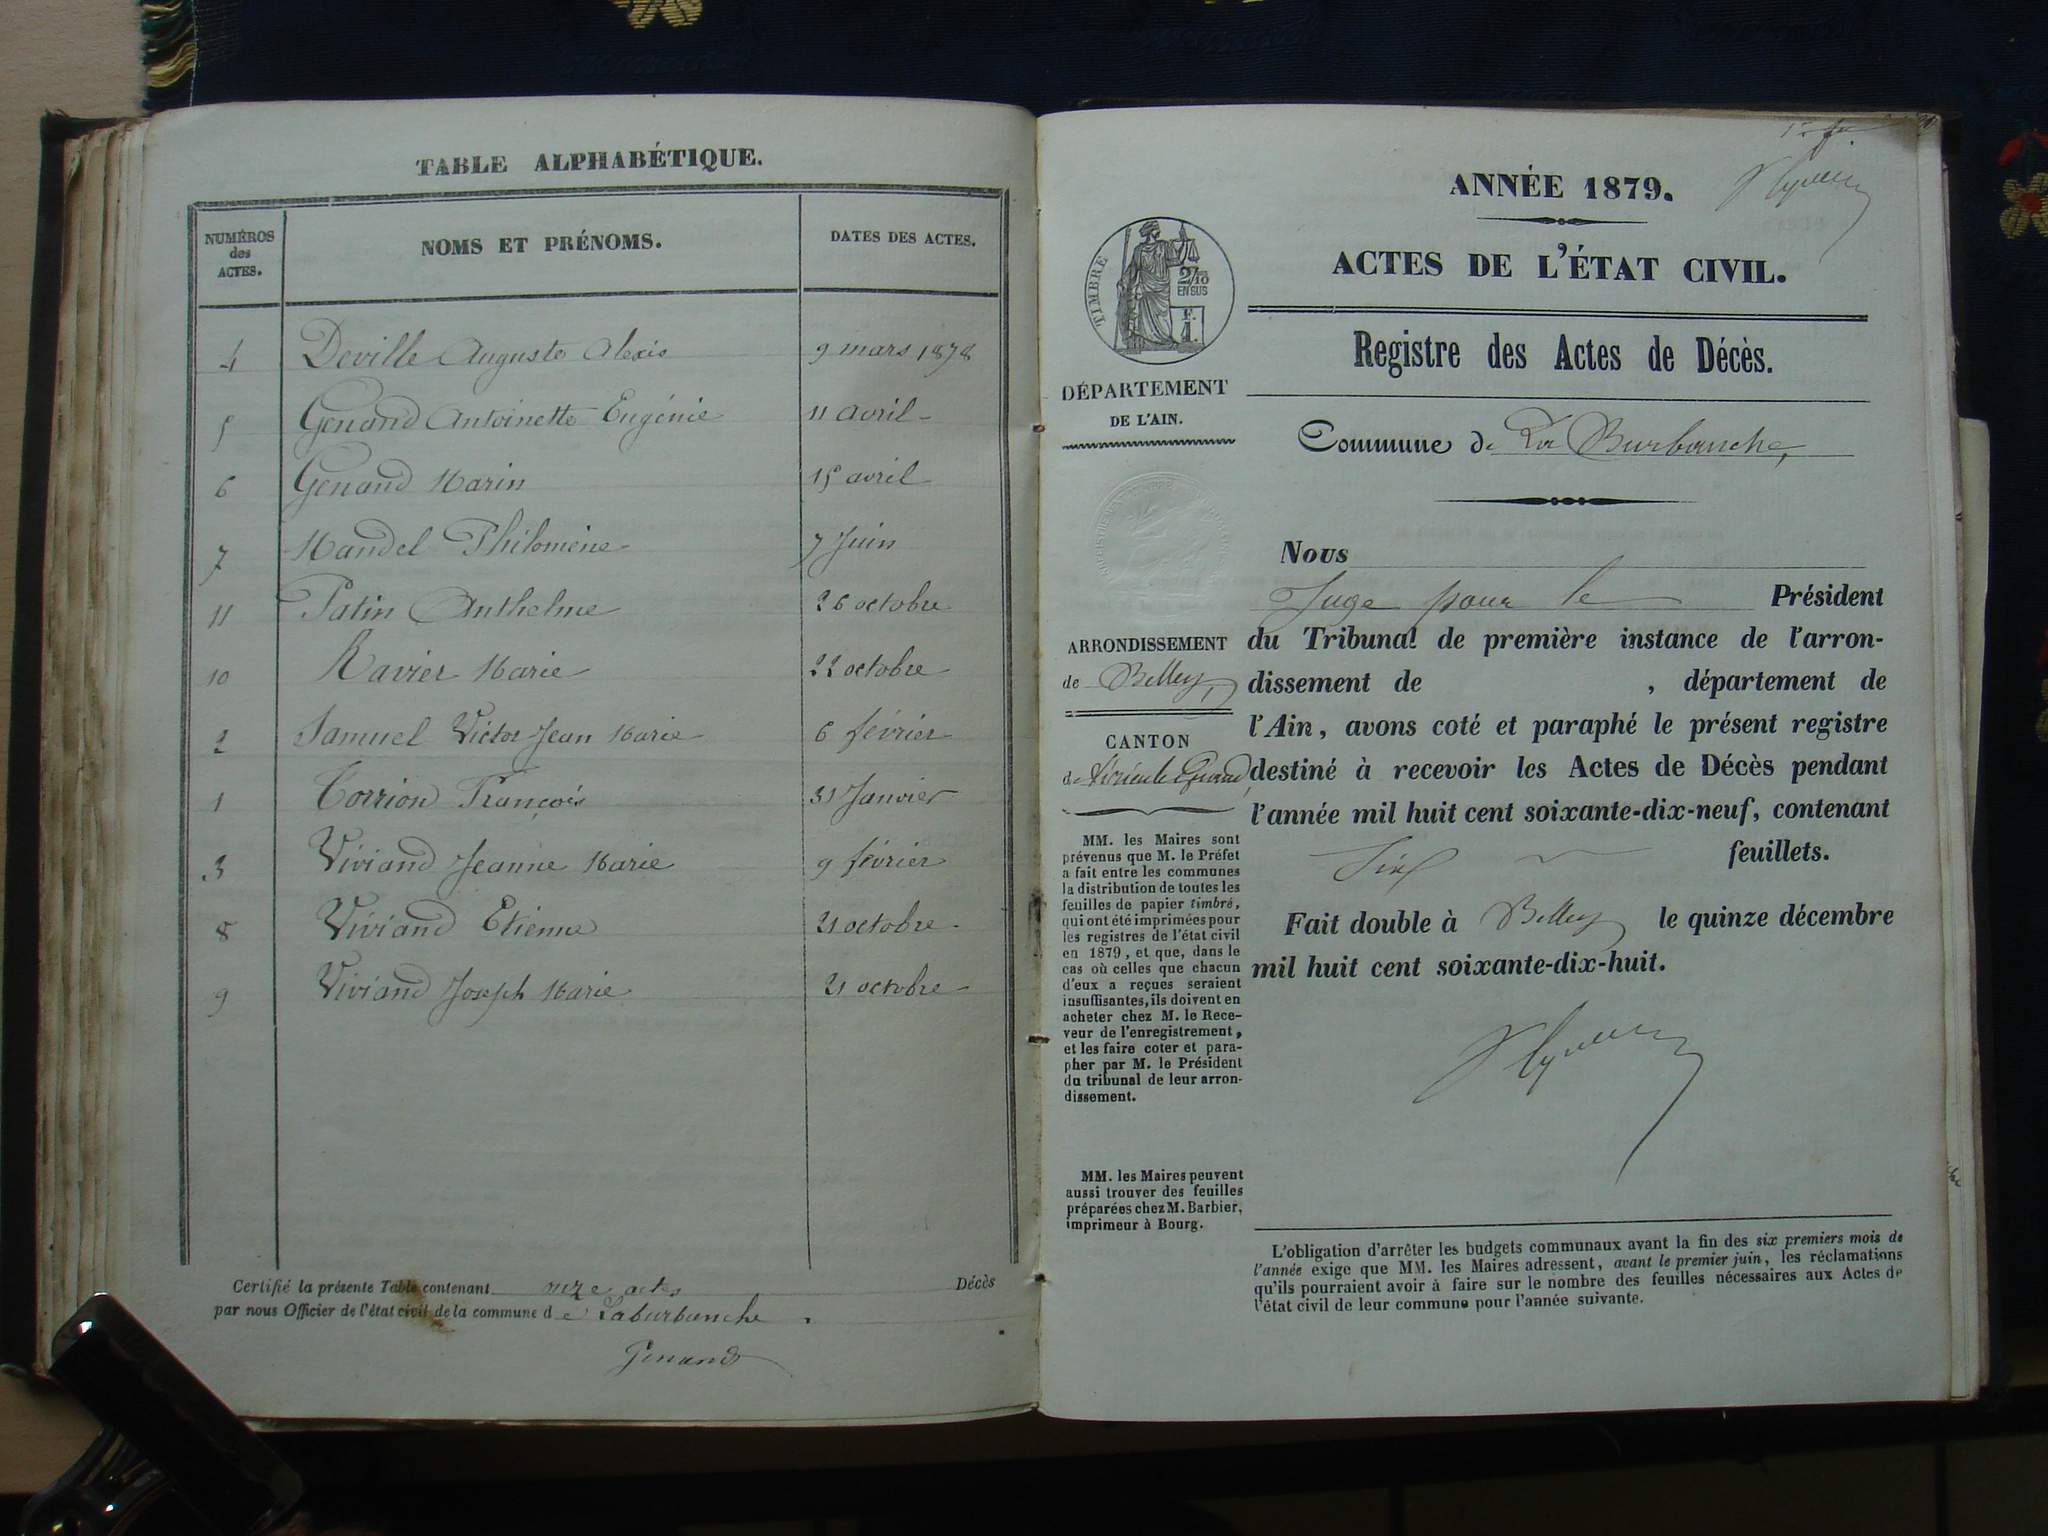 TABLE ALPHABÉTIQUE.
NUMÉROS des ACTES. NOMS ET PRÉNOMS. DATES DES ACTES.
4 Deville Auguste Alexis 9 mars 1878
5 Genand Antoinette Eugénie 11 avril
6 Genand Marin 15 avril
7 Mandel Philomène 7 Juin
11 Patin Anthelme 26 octobre
10 Ravier Marie 22 octobre
2 Samuel Victor Jean Marie 6 février
1 Torrion François 31 Janvier
3 Viviand Jeanne Marie 9 février
8 Viviand Etienne 21 octobre
9 Viviand Joseph Marie 21 octobre
Certifié la présente Table contenant onze actes Décès
par nous Officier de l'état civil de la commune de Laburbanche.
Genand
ANNÉE 1879.
ACTES DE L'ÉTAT CIVIL.
TIMBRE
2/10
EN SUS
F.
1.
Registre des Actes de Décès.
DÉPARTEMENT
DE L'AIN.
Commune de La Burbanche,
Nous
Juge pour le Président
du Tribunal de première instance de l'arron-
dissement de , département de
l'Ain, avons coté et paraphé le présent registre
destiné à recevoir les Actes de Décès pendant
l'année mil huit cent soixante-dix-neuf, contenant
Six feuillets.
Fait double à Belley le quinze décembre
mil huit cent soixante-dix-huit.
ARRONDISSEMENT
de Belley,
CANTON
de Virieu le Grand,
MM. les Maires sont
prévenus que M. le Préfet
a fait entre les communes
la distribution de toutes les
feuilles de papier timbré,
qui ont été imprimées pour
les registres de l'état civil
en 1879, et que, dans le
cas où celles que chacun
d'eux a reçues seraient
insuffisantes, ils doivent en
acheter chez M. le Rece-
veur de l'enregistrement,
et les faire coter et para-
pher par M. le Président
du tribunal de leur arron-
dissement.
MM. les Maires peuvent
aussi trouver des feuilles
préparées chez M. Barbier,
imprimeur à Bourg.
L'obligation d'arrêter les budgets communaux avant la fin des six premiers mois de
l'année exige que MM. les Maires adressent, avant le premier juin, les réclamations
qu'ils pourraient avoir à faire sur le nombre des feuilles nécessaires aux Actes de
l'état civil de leur commune pour l'année suivante.